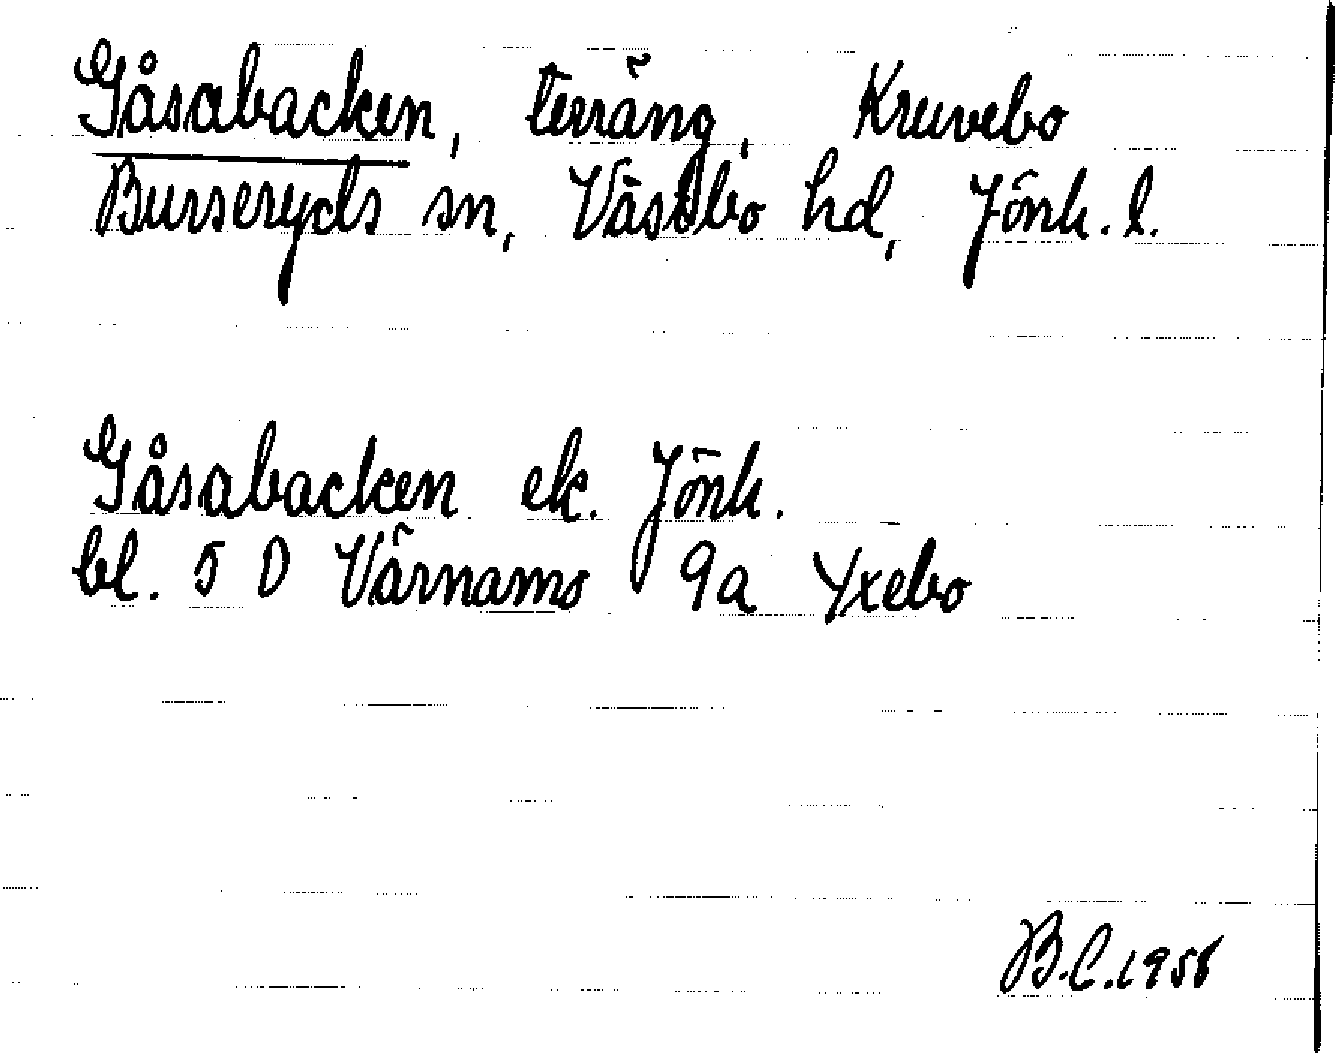 Gåsabacken, terräng, Kruvebo
Burseryds sn, Västbo hd, Jönk. l.
Gåsabacken ek. Jönk.
bl. 5 D Värnamo 9a Yxebo
B.C. 1958